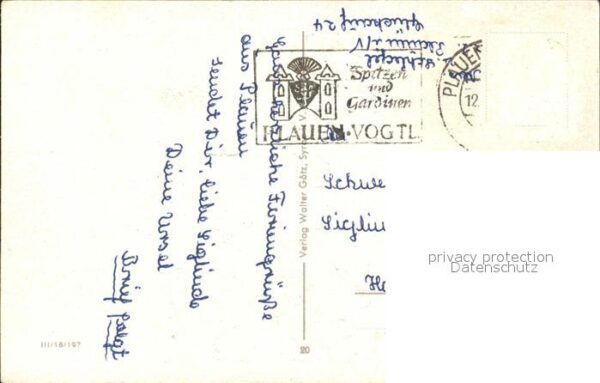 Ganz herzliche Feriengrüße
aus Plauen
sendet Dir, liebe Sieglinde
Deine Ursel
Brief folgt
Plauen i/V
Glückauf 24
Spitzen
und
Gardinen
PLAUEN·VOGTL
PLAUEN
12.
Schwe
Siglin
Verlag Walter Götz,
III/18/197
20
privacy protection
Datenschutz